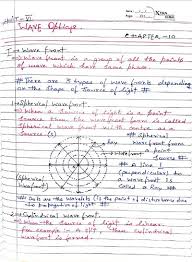 UNIT - VI
WAVE Optics
CHAPTER - 10
1 → Wave front
⇒ Wave front is a group of all the points
of wave which have same phase.
# There are 3 types of wave fronts depending
on the shape of source of light #
1 → Spherical wave front
⇒ When a source of light is a point
source then wave front form is called
spherical wave front with centre as a
source of
# spherical
Ray
wave front from
a point
source #
# A line ⊥
(perpendicular) to
a wavefront is
called a Ray ##
(spherical
wavefront)
the wavelets is the point of disturbance
due to propagation of light #
2 → Cylindrical wave front
⇒ When the source of light is linear
for example in a slit, then cylindrical
wavefront is formed.